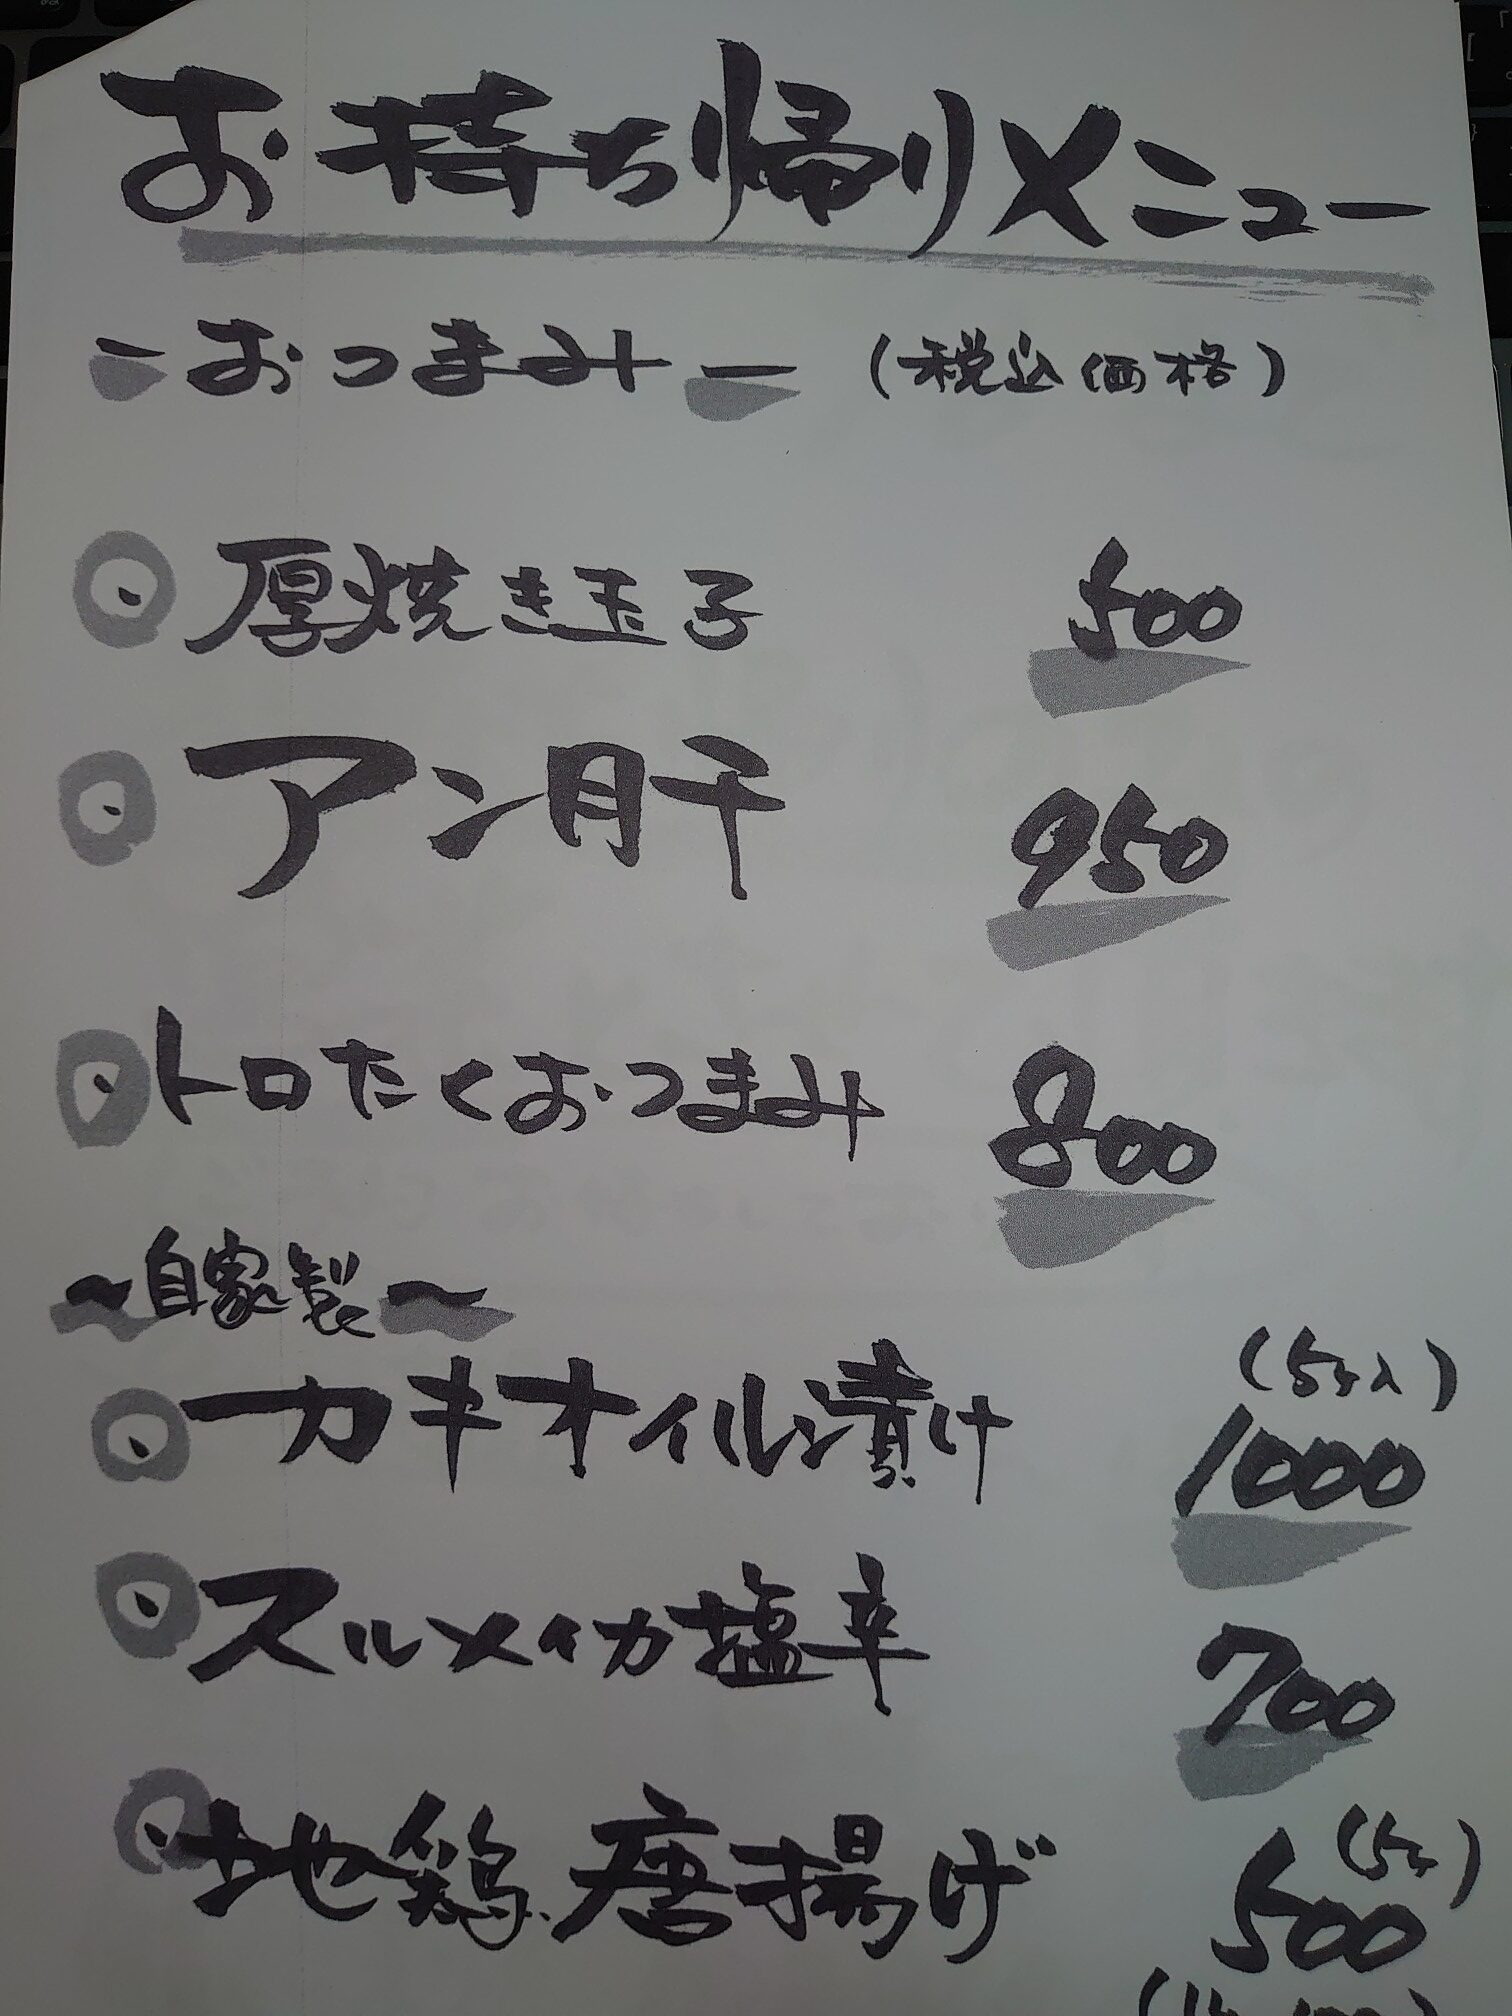 お持ち帰りメニュー
-おつまみ- (税込価格)
・厚焼き玉子 500
・アン肝 950
・トロたくおつまみ 800
~自家製~
・カキオイル漬け (5ヶ入) 1000
・スルメイカ塩辛 700
・地鶏唐揚げ (5ヶ) 500